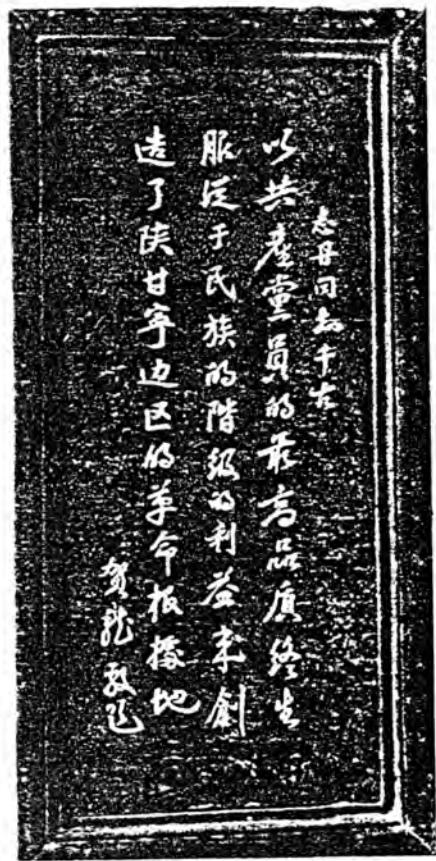 志丹同志千古
以共產黨員的最高品质終生
服従于民族的階級的利益來創
造了陕甘宁边区的革命根據地
贺龍敬题